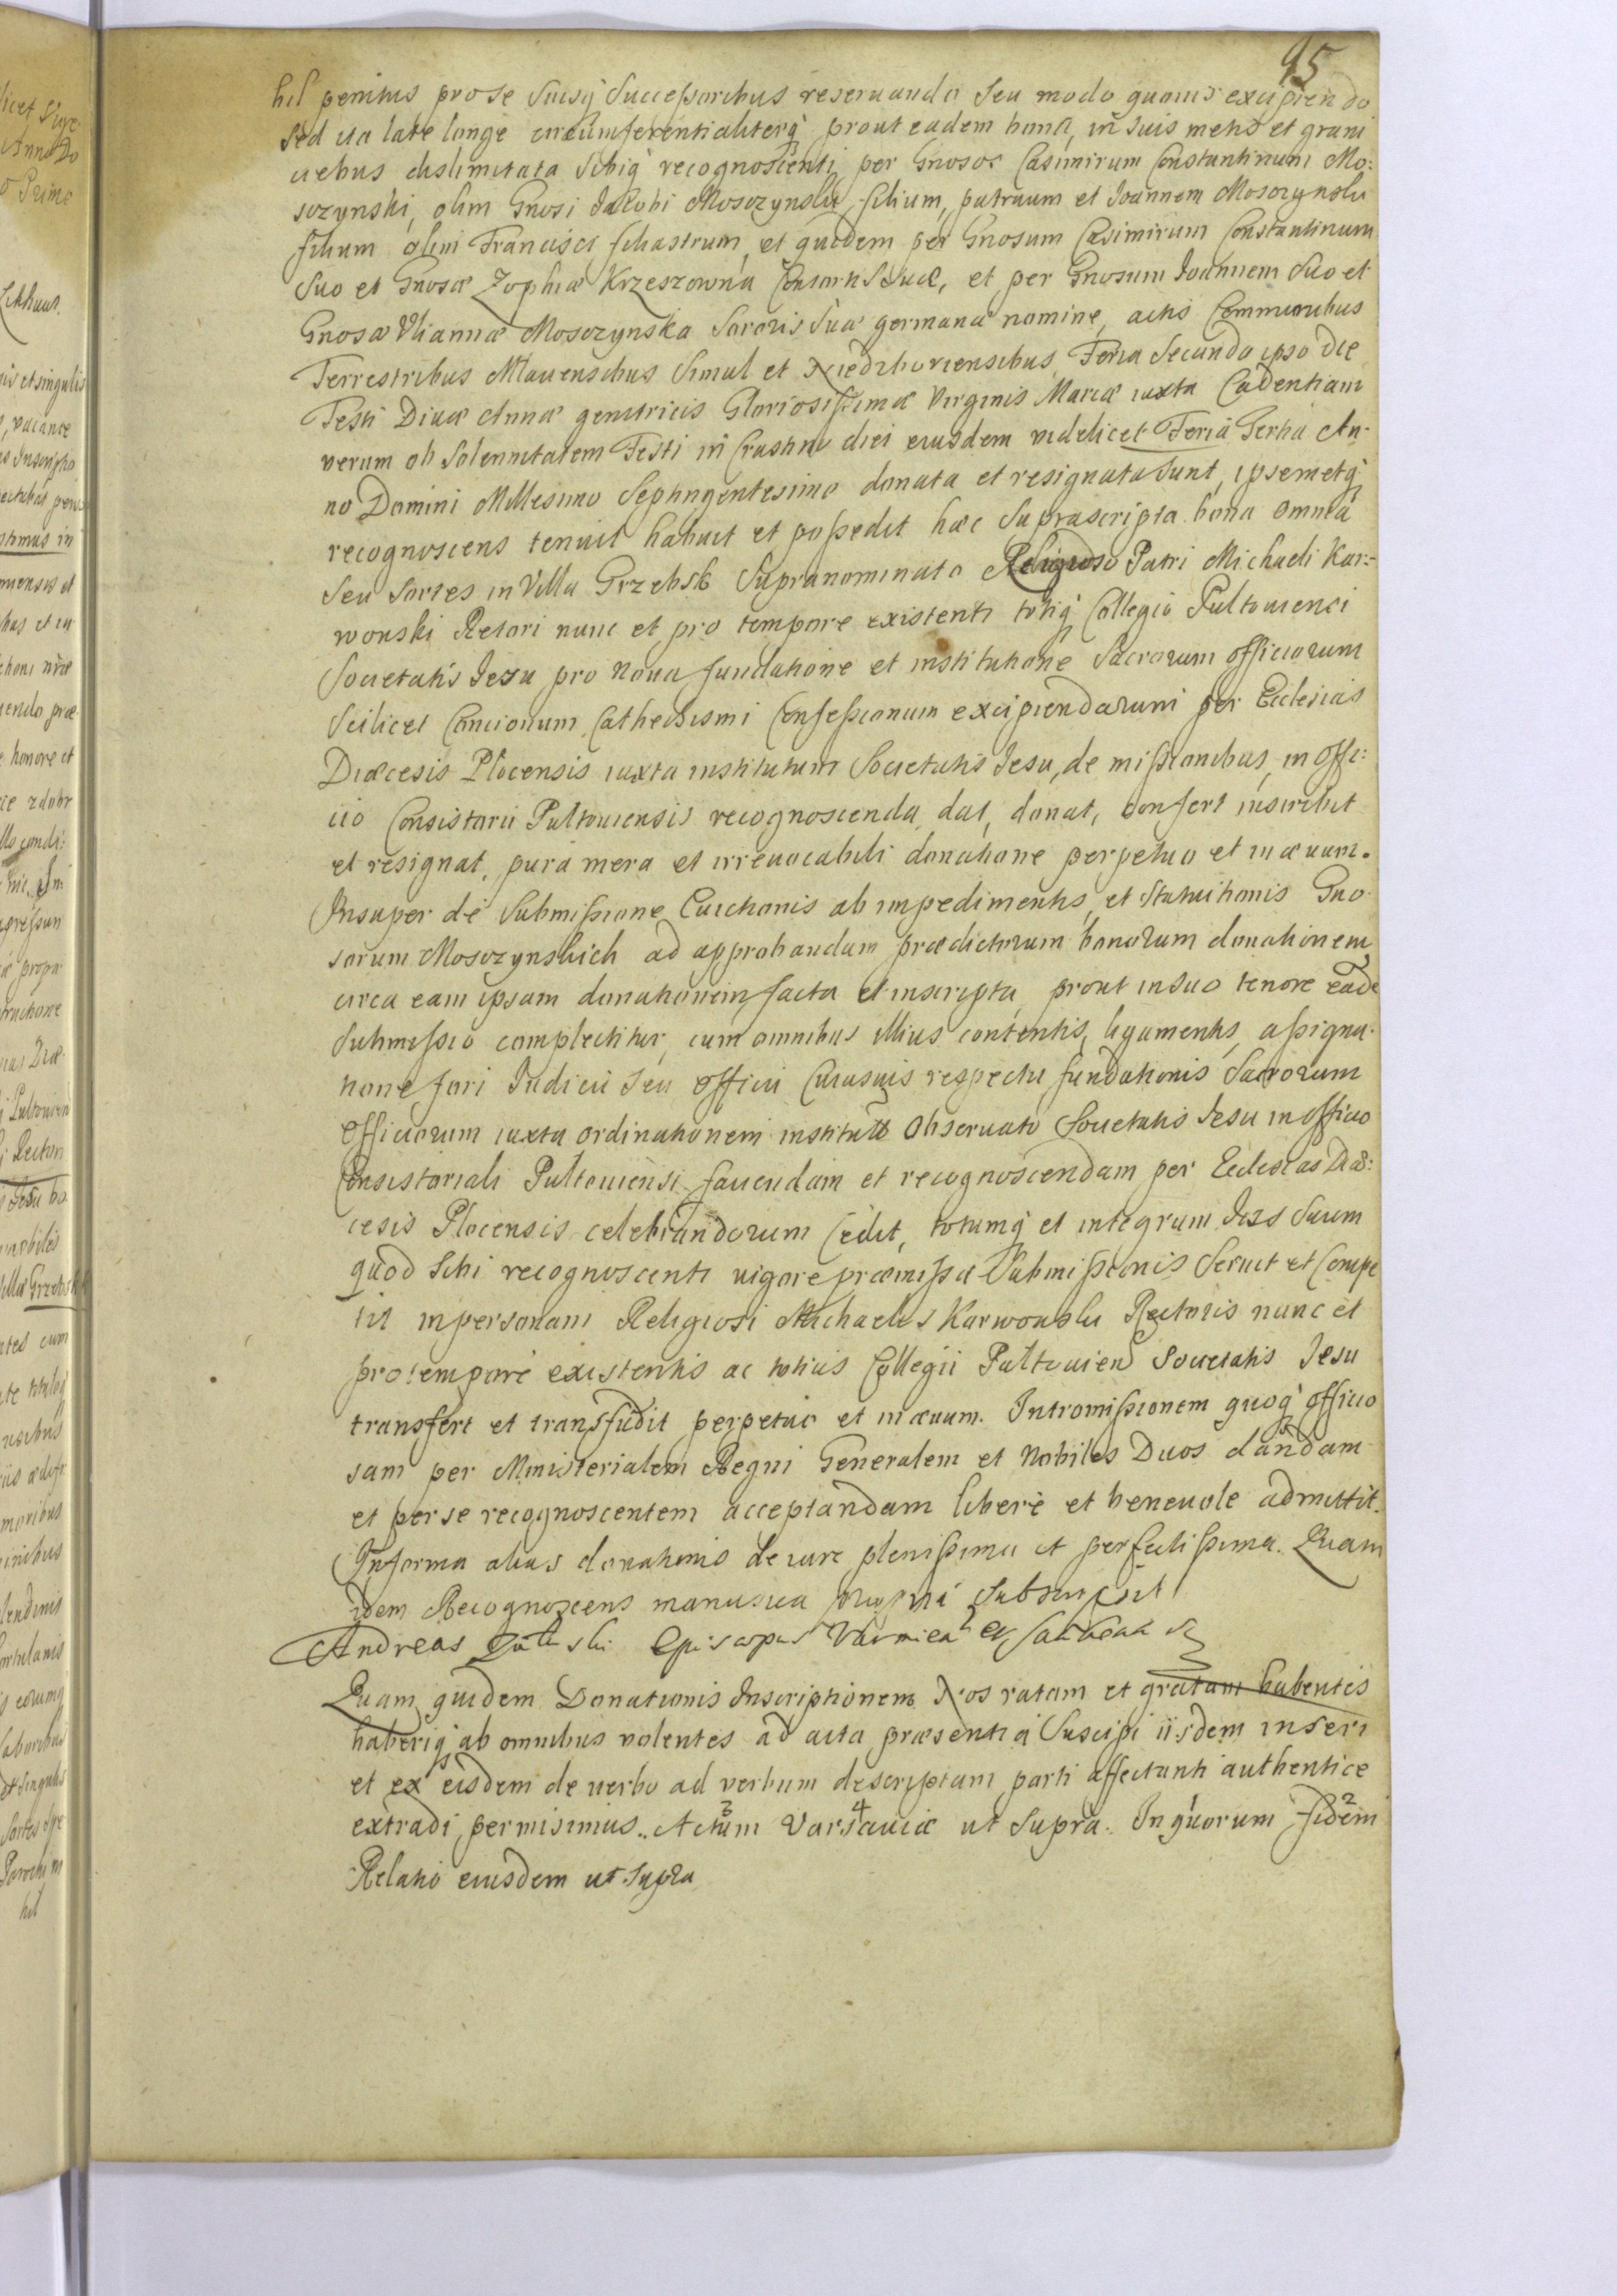 95
hil penitus pro se Suisq Successoribus reseruando seu modo quouis excipiendo
Sed ita late longe circumferentialiterq prout eadem bona, in suis metis et grani
ciebus dislimitata sibiq recognoscenti, per Gnosos Casimirum Constantinum Mo:
sozynski, olim Gnosi Jakobi Mosozynski filium, patruum et Joannem Mosozynski
filium olim Francisci filiastrum, et quidem per Gnosum Casimirum Constantinum
Suo et Gnosæ Zophiæ Krzeszowna Consortis Suæ, et per Gnosum Joannem Suo et
Gnosæ Ulianna Mosozynska Sororis Suæ germana nomine, actis Communibus
Terrestribus Mlauensibus Simul et Niedzboriensibus, Feria Secunda ipso die
Festi Diuæ Annæ genitricis Gloriosissimæ Virginis Mariæ iuxta Cadentiam
verum ob Solennitatem Festi in Crastino diei eiusdem videlicet Feria Tertia An-
no Domini Millesimo Septingentesimo donata et resignata sunt, ipsemetq
recognoscens tenuit habuit et possedit hæc Suprascripta bona omnia
Seu Sortes in Villa Grzebsk Supranominata Religioso Patri Michaeli Kar:-
wouski Retori nunc et pro tempore existenti totiq Collegio Pultouiensi
Societatis Jesu pro noua fundatione et institutione Sacrorum officiorum
Scilicet Concionum, Cathechismi Confessionum excipiendarum per Ecclesias
Diœcesis Plocensis iuxta institutum Societatis Jesu, de missionibus, in offi:
cio Consistorii Pultouiensis recognoscenda, dat, donat, confert inscribit
et resignat, pura mera et irreuocabili donatione perpetuo et in æuum.
Insuper de Submissione Euictionis ab impedimentis, et Statuitionis Gno-
sorum Mosozynskich ad approbandam prædictorum bonorum donationem
circa eam ipsam donationem facta et inscripta, prout in suo tenore eade
Submissio complectitur, cum omnibus illius contentis, ligamentis, assigna-
tione fori Judicii seu officii Cuiusuis respectu fundationis Sacrorum
Officiorum iuxta ordinationem instituto Obseruato Societatis Jesu in officio
Consistoriali Pultouiensi faciendam et recognoscendam per Ecclesias Diœ:
cesis Plocensis celebrandorum Cedit, totumq et integrum Jus Suum
quod Sibi recognoscenti vigore præmissæ Submissionis Seruit et Compe
tit in personam Religiosi Michaelis Karwouski Rectoris nunc et
pro tempore existentis ac totius Collegii Pultouien Societatis Jesu
transfert et transfudit perpetuo et in æuum. Intromissionem quoq officio
sam per Ministerialem Regni Generalem et Nobiles Duos dandam
et per se recognoscentem acceptandam libere et beneuole admittit.
In forma alias donationis de iure plenissima et perfectissima. Quam
idem Recognoscens manu sua Subscripsit
Andreas Episcopus
Quam quidem Donationis Inscriptionem Nos ratam et gratam habentes
haberiq ab omnibus volentes ad acta præsentia Suscipi iisdem inseri
et ex eisdem de verbo ad verbum descriptam parti affectanti authentice
extradi permisimus. Actum Varsauiæ ut Supra. In quorum fidem
Relatio eiusdem ut Supra